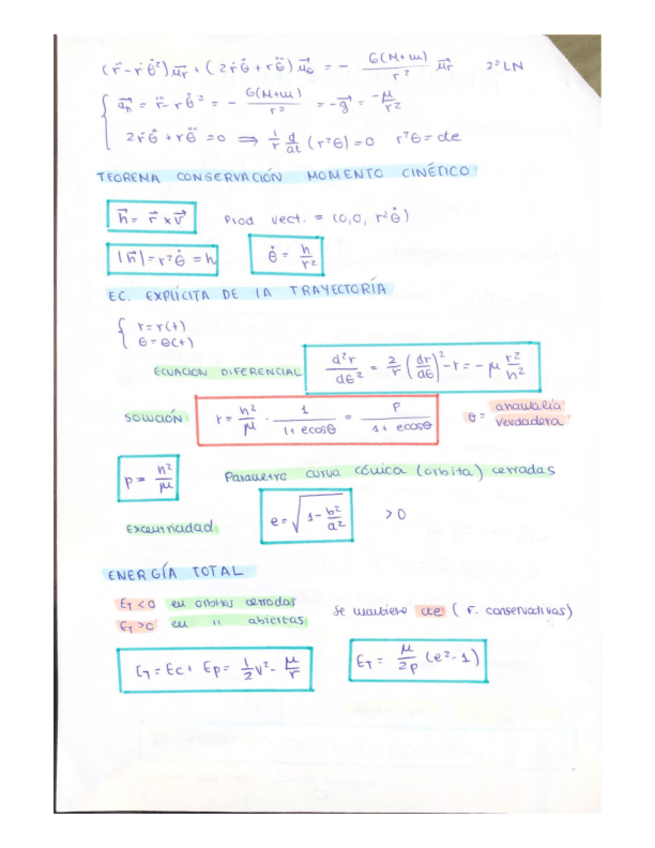 (r̈ - ṙ θ̇²) μ⃗r + (2ṙθ̇ + rθ̈) μ⃗θ = - G(M+m)/r² μ⃗r 2ª LN
a⃗n = r̈ - r θ̇² = - G(M+m)/r² = -g⃗ = -μ/r²
2ṙθ̇ + rθ̈ = 0 ⟹ 1/r d/dt (r²θ̇) = 0 r²θ̇ = cte
TEOREMA CONSERVACIÓN MOMENTO CINÉTICO:
h⃗ = r⃗ x v⃗ Prod vect. = (0,0, r²θ̇)
|h⃗| = r²θ̇ = h θ̇ = h/r²
EC. EXPLÍCITA DE LA TRAYECTORÍA
r = r(t)
θ = θ(t)
ECUACION DIFERENCIAL d²r/dθ² = 2/r (dr/dθ)² - r = - μ r²/h²
SOLUCIÓN r = h²/μ · 1/1+ecosθ = P/1+ecosθ θ = anomalía verdadera
p = h²/μ Parametro curva cónica (orbita) cerradas
Excentricidad e = √1 - b²/a² >0
ENERGÍA TOTAL
ET < 0 en orbitas cerradas
ET > 0 en " abiertas Se mantiene cte (F. conservativas)
ET = Ec + Ep = 1/2 v² - μ/r ET = μ/2p (e² - 1)